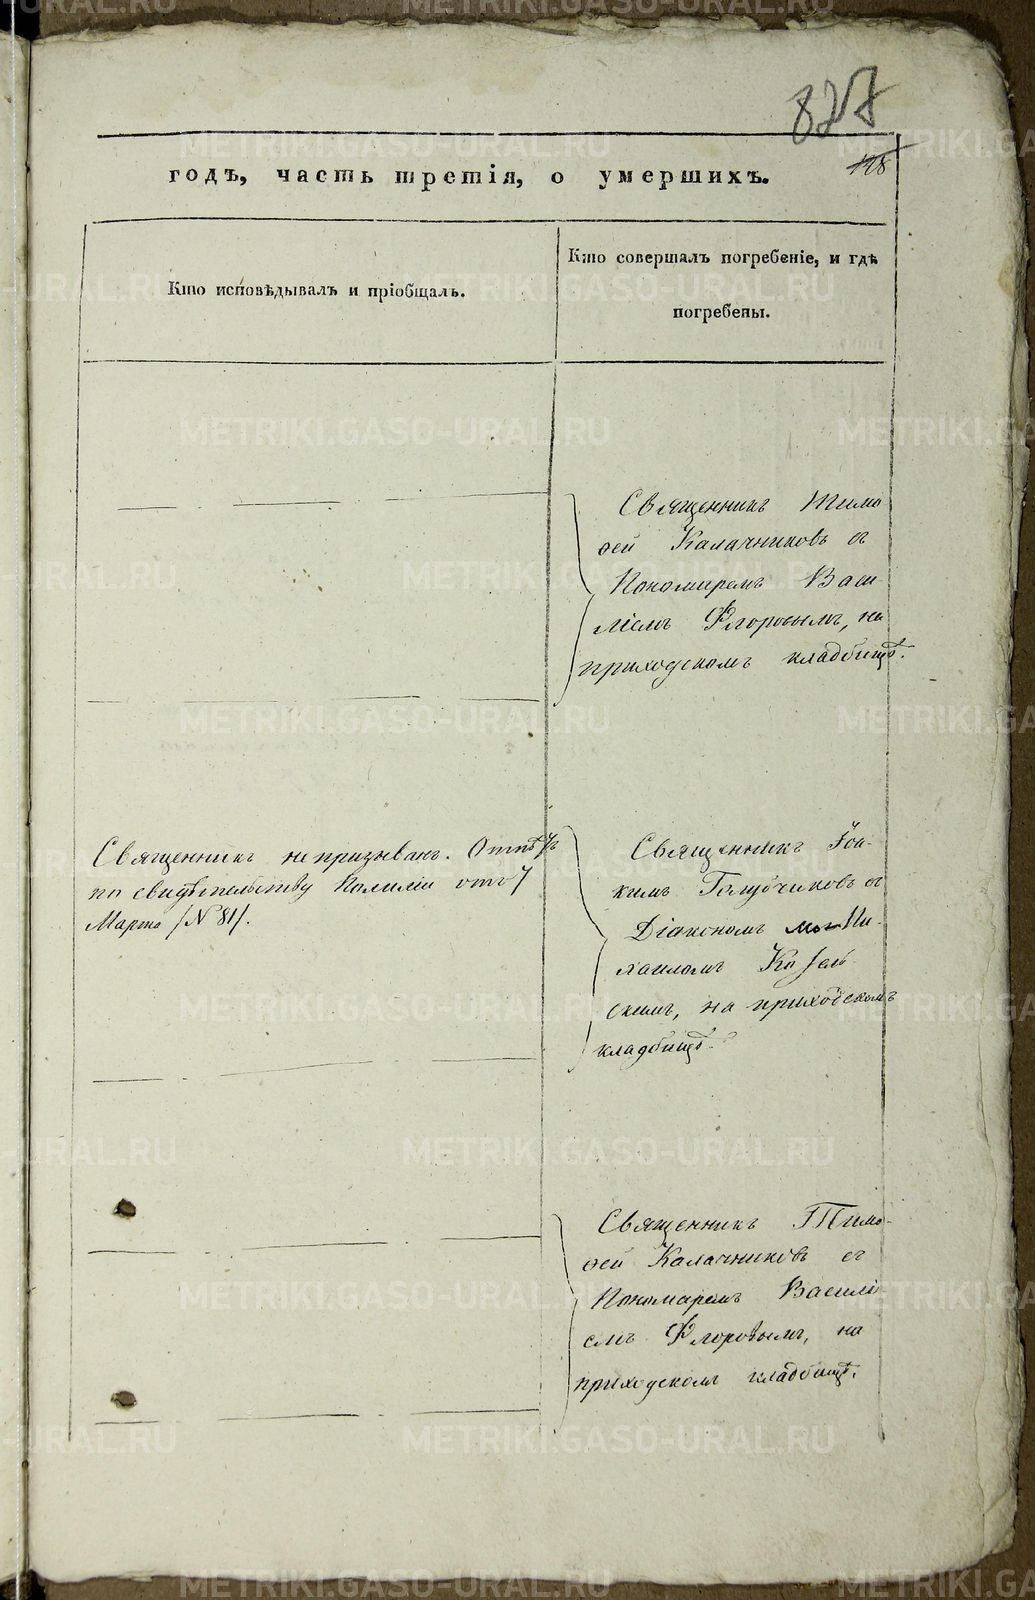 827
128
годъ, часть третія, о умершихъ.
Кто исповѣдывалъ и пріобщалъ.
Кто совершалъ погребеніе, и гдѣ
погребены.
Священникъ Тимо
ѳей Калачниковъ съ
Пономаремъ Васи
ліемъ Флоровымъ, на
приходскомъ кладбищѣ.
Священникъ не призыванъ. Отпѣтъ
по свидѣтельству Полиціи отъ 7
Марта /№ 81/.
Священникъ Іоа-
кимъ Голубчиковъ съ
Діакономъ Ми-
хаиломъ Козель-
скимъ, на приходскомъ
кладбищѣ.
Священникъ Тимо-
ѳей Калачниковъ съ
Пономаремъ Василі
емъ Флоровымъ, на
приходскомъ кладбищѣ.
METRIKI.GASO-URAL.RU